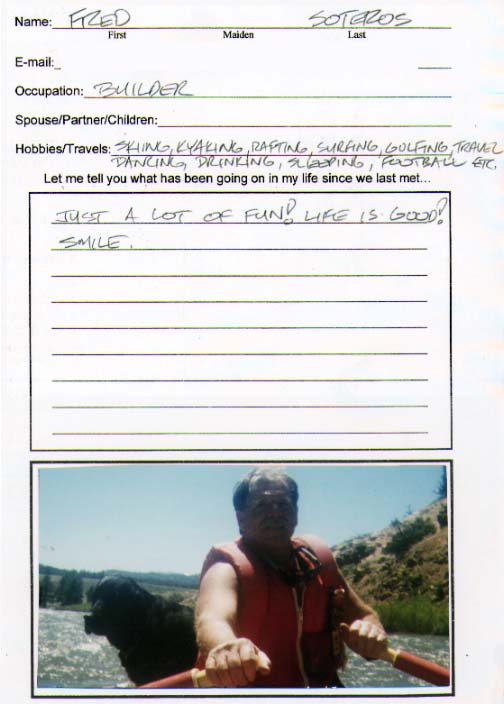 Name: FRED SOTEROS
First Maiden Last
E-mail:
Occupation: BUILDER
Spouse/Partner/Children:
Hobbies/Travels: SKIING, KYAKING, RAFTING, SURFING, GOLFING, TRAVEL
DANCING, DRINKING, SLEEPING, FOOTBALL ETC.
Let me tell you what has been going on in my life since we last met...
JUST A LOT OF FUN! LIFE IS GOOD!
SMILE.